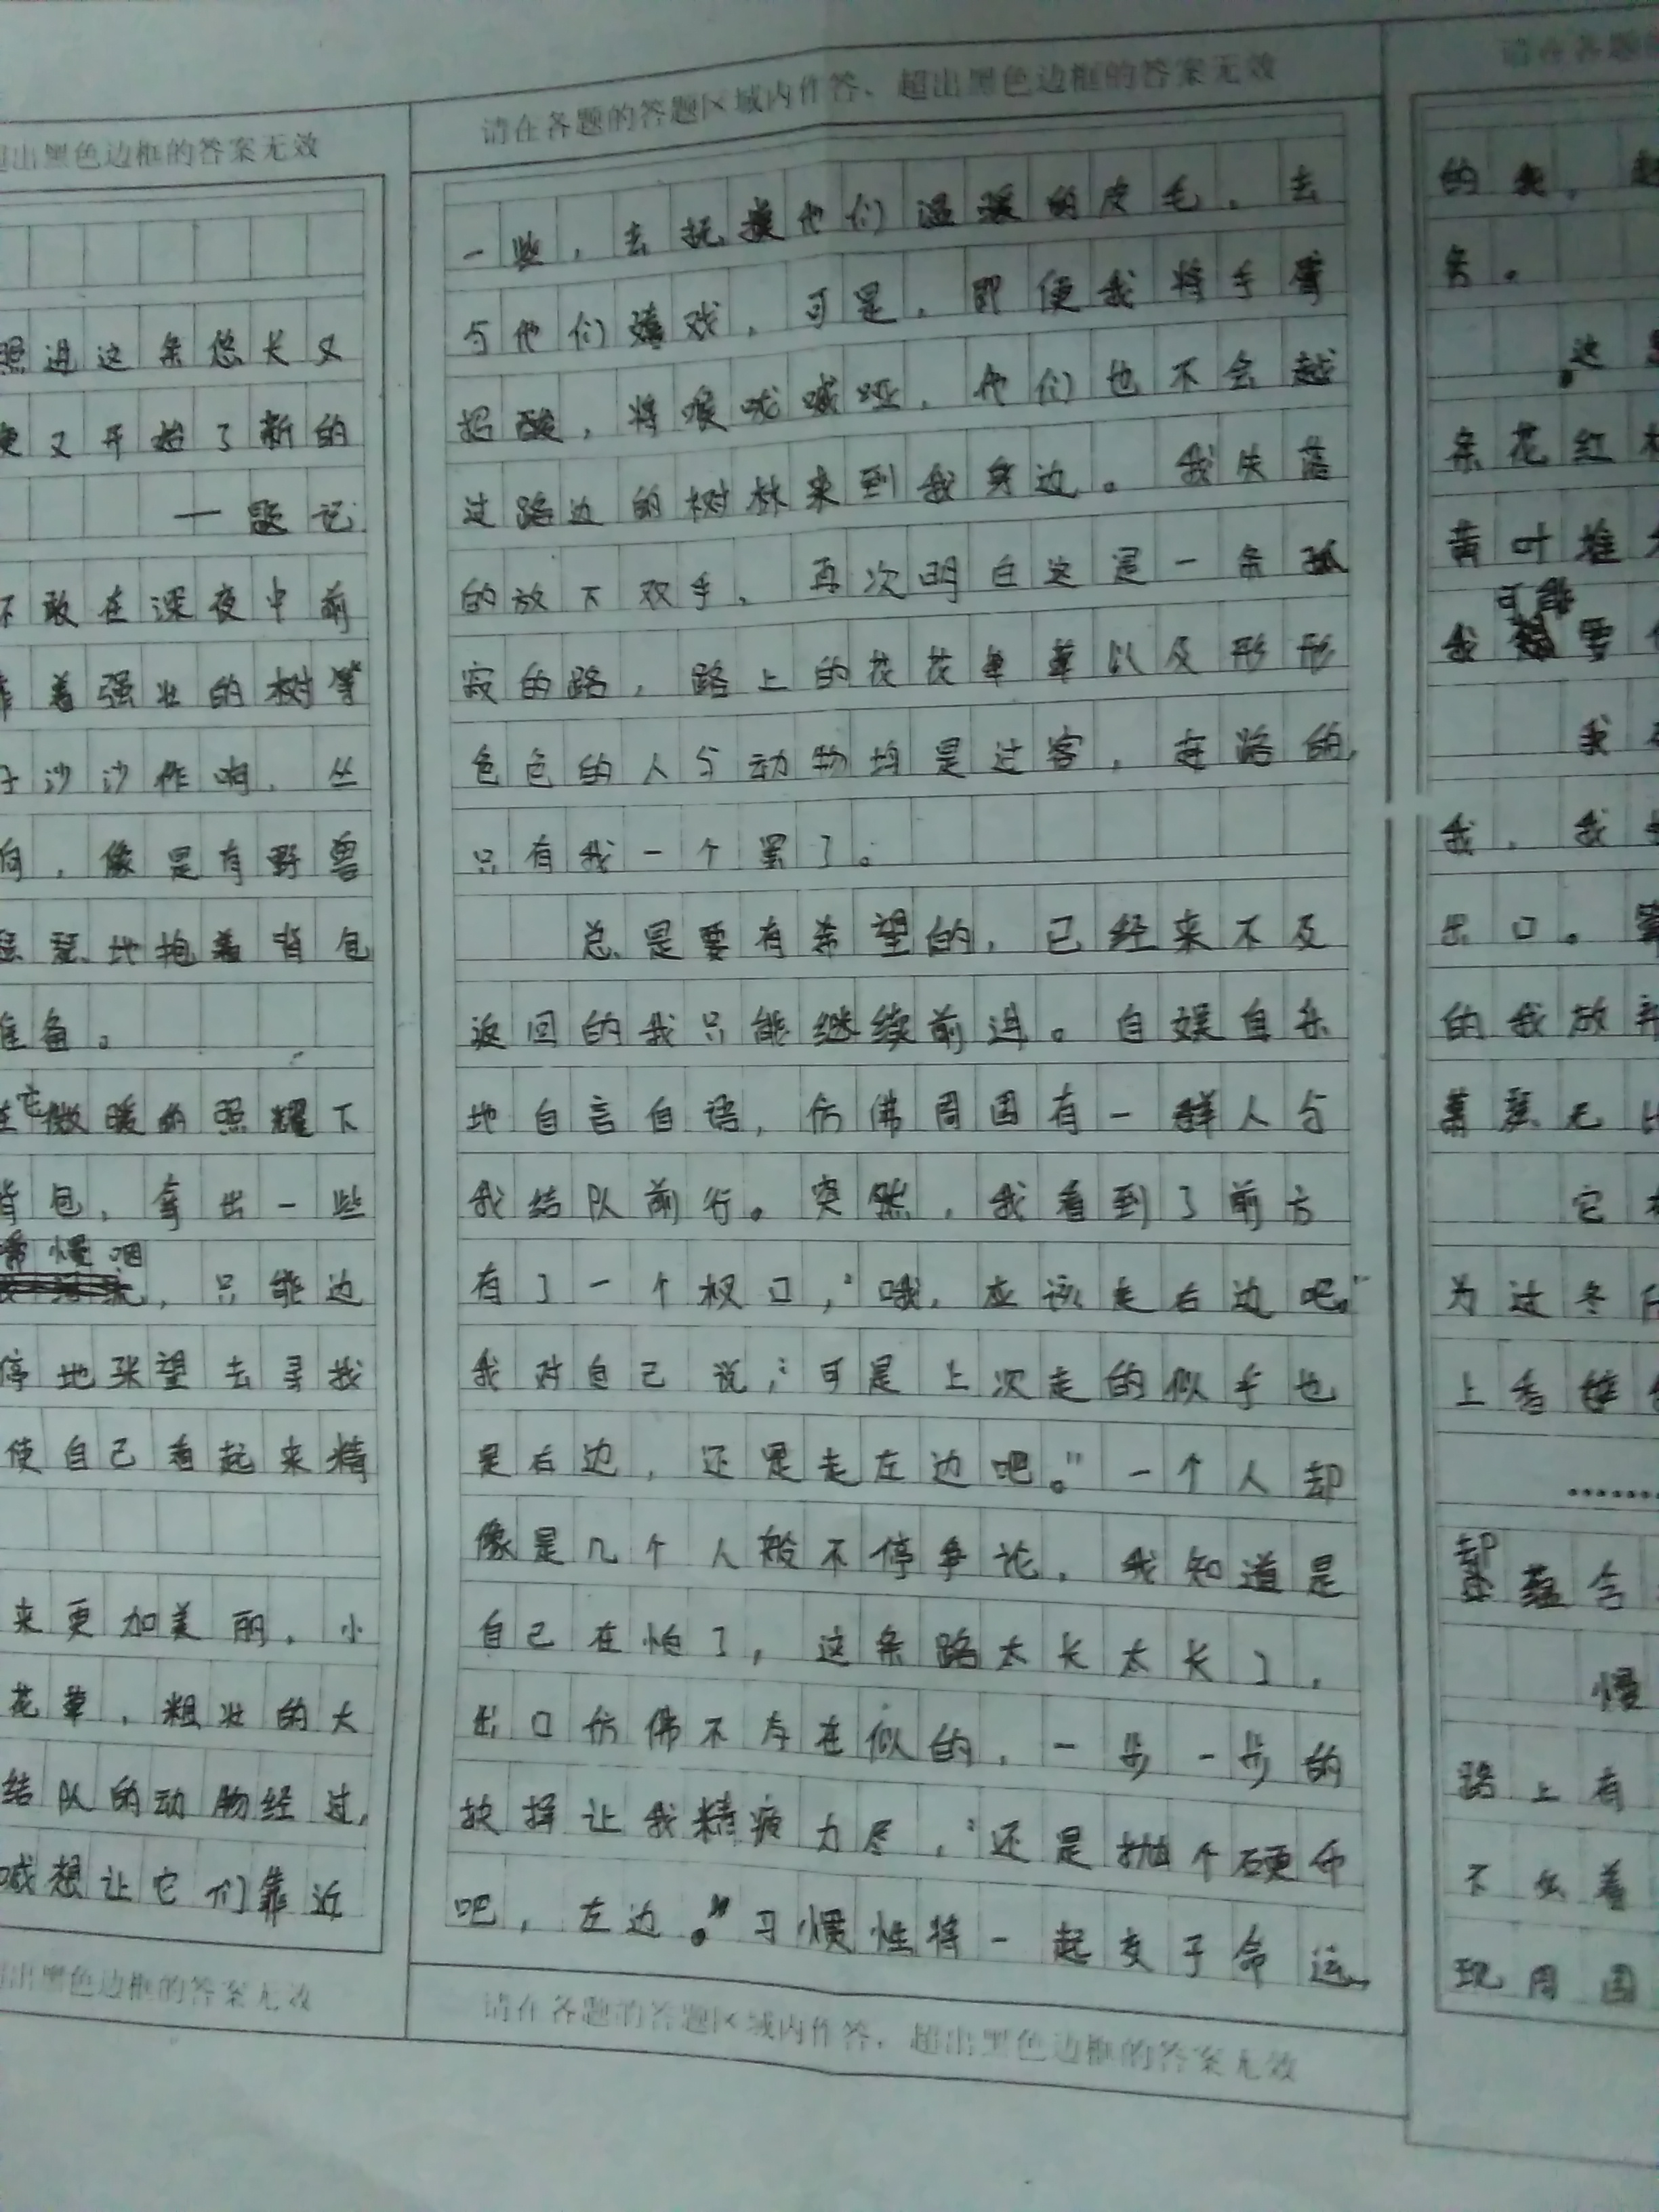 超出黑色边框的答案无效
照进这条悠长又
便又开始了新的
一题记
不敢在深夜中前
靠着强壮的树等
子沙沙作响，丛
向，像是有野兽
瑟瑟地抱着背包
准备。
在它微暖的照耀下
背包，拿出一些
慢咽
，只能边
停地张望去寻找
使自己看起来精
来更加美丽。小
花草，粗壮的大
结队的动物经过，
喊想让它们靠近
超出黑色边框的答案无效
请在各题的答题区域内作答，超出黑色边框的答案无效
一些，去抚摸他们温暖的皮毛，去
与他们嬉戏，可是，即便我将手臂
招酸，将喉咙喊哑，他们也不会越
过路边的树林来到我身边。我失落
的放下双手，再次明白这是一条孤
寂的路，路上的花花草草以及形形
色色的人与动物均是过客，走路的，
只有我一个罢了。
总是要有希望的，已经来不及
返回的我只能继续前进。自娱自乐
地自言自语，仿佛周围有一群人与
我结队前行。突然，我看到了前方
有了一个杈口，“哦，应该走右边吧。”
我对自己说，“可是上次走的似乎也
是右边，还是走左边吧。”一个人却
像是几个人般不停争论，我知道是
自己在怕了，这条路太长太长了，
出口仿佛不存在似的，一步一步的
抉择让我精疲力尽，“还是抛个硬币
吧，左边。”习惯性将一起交于命运，
请在各题的答题区域内作答，超出黑色边框的答案无效
请在各题的
的
务。
这
条花红
黄叶堆
可能
我要
我
我，我
出口。
的我放弃
萧瑟无比
它
为过冬
上香
………
却
蕴含
慢
路上有
不么着
现周围